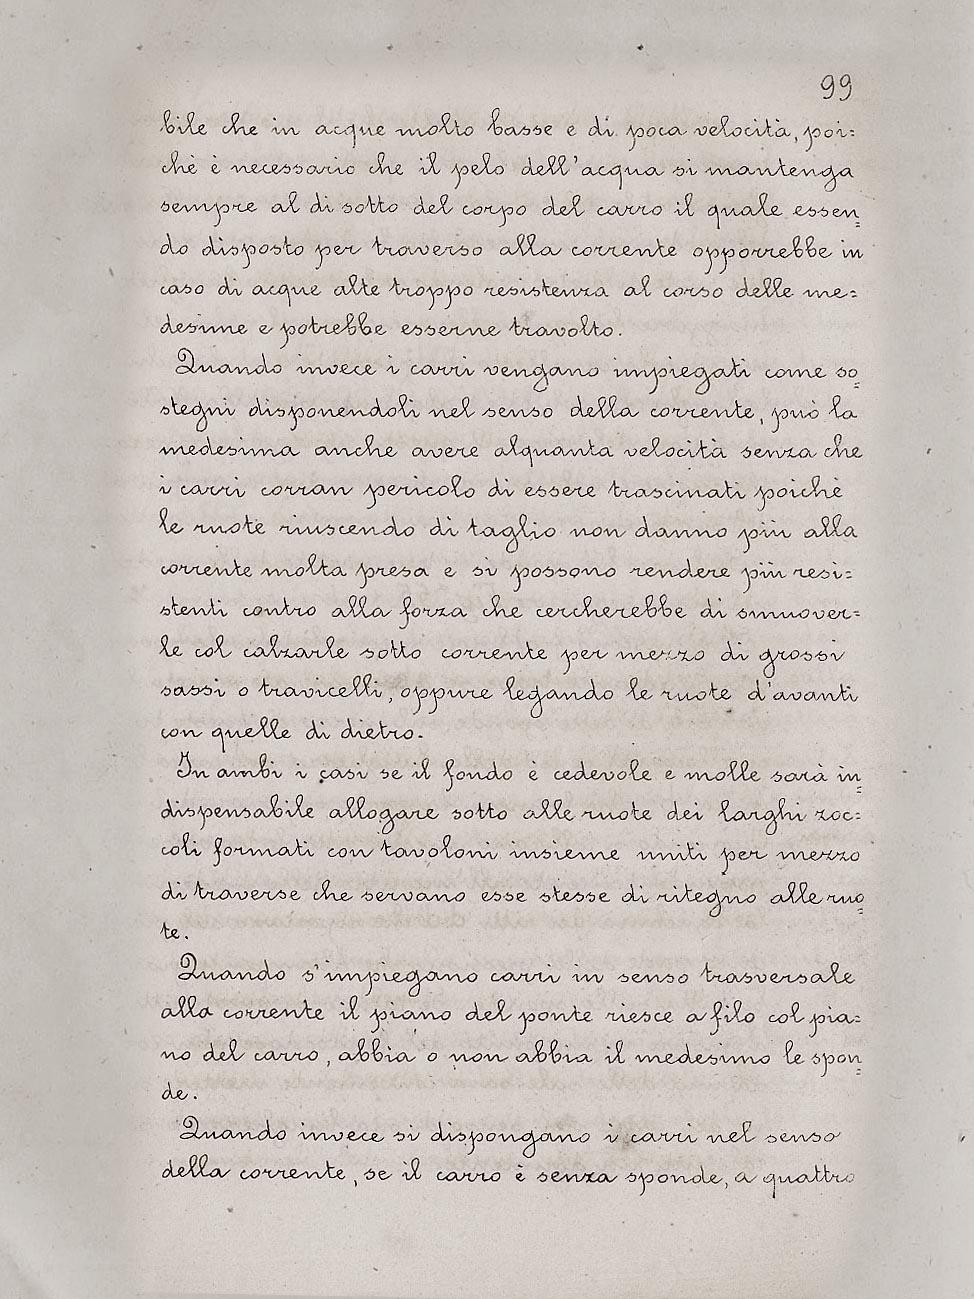 99
bile che in acque molto basse e di poca velocità, poi=
chè è necessario che il pelo dell'acqua si mantenga
sempre al di sotto del corpo del carro il quale essen=
do disposto per traverso alla corrente opporrebbe in
caso di acque alte troppo resistenza al corso delle me=
desime e potrebbe esserne travolto.
Quando invece i carri vengano impiegati come so=
stegni disponendoli nel senso della corrente, può la
medesima anche avere alquanta velocità senza che
i carri corran pericolo di essere trascinati poichè
le ruote riuscendo di taglio non danno più alla
corrente molta presa e si possono rendere più resi=
stenti contro alla forza che cercherebbe di smuover=
le col calzarle sotto corrente per mezzo di grossi
sassi o travicelli, oppure legando le ruote d'avanti
con quelle di dietro.
In ambi i casi se il fondo è cedevole e molle sarà in=
dispensabile allogare sotto alle ruote dei larghi zoc=
coli formati con tavoloni insieme uniti per mezzo
di traverse che servano esse stesse di ritegno alle ruo=
te.
Quando s'impiegano carri in senso trasversale
alla corrente il piano del ponte riesce a filo col pia=
no del carro, abbia o non abbia il medesimo le spon=
de.
Quando invece si dispongano i carri nel senso
della corrente, se il carro è senza sponde, a quattro